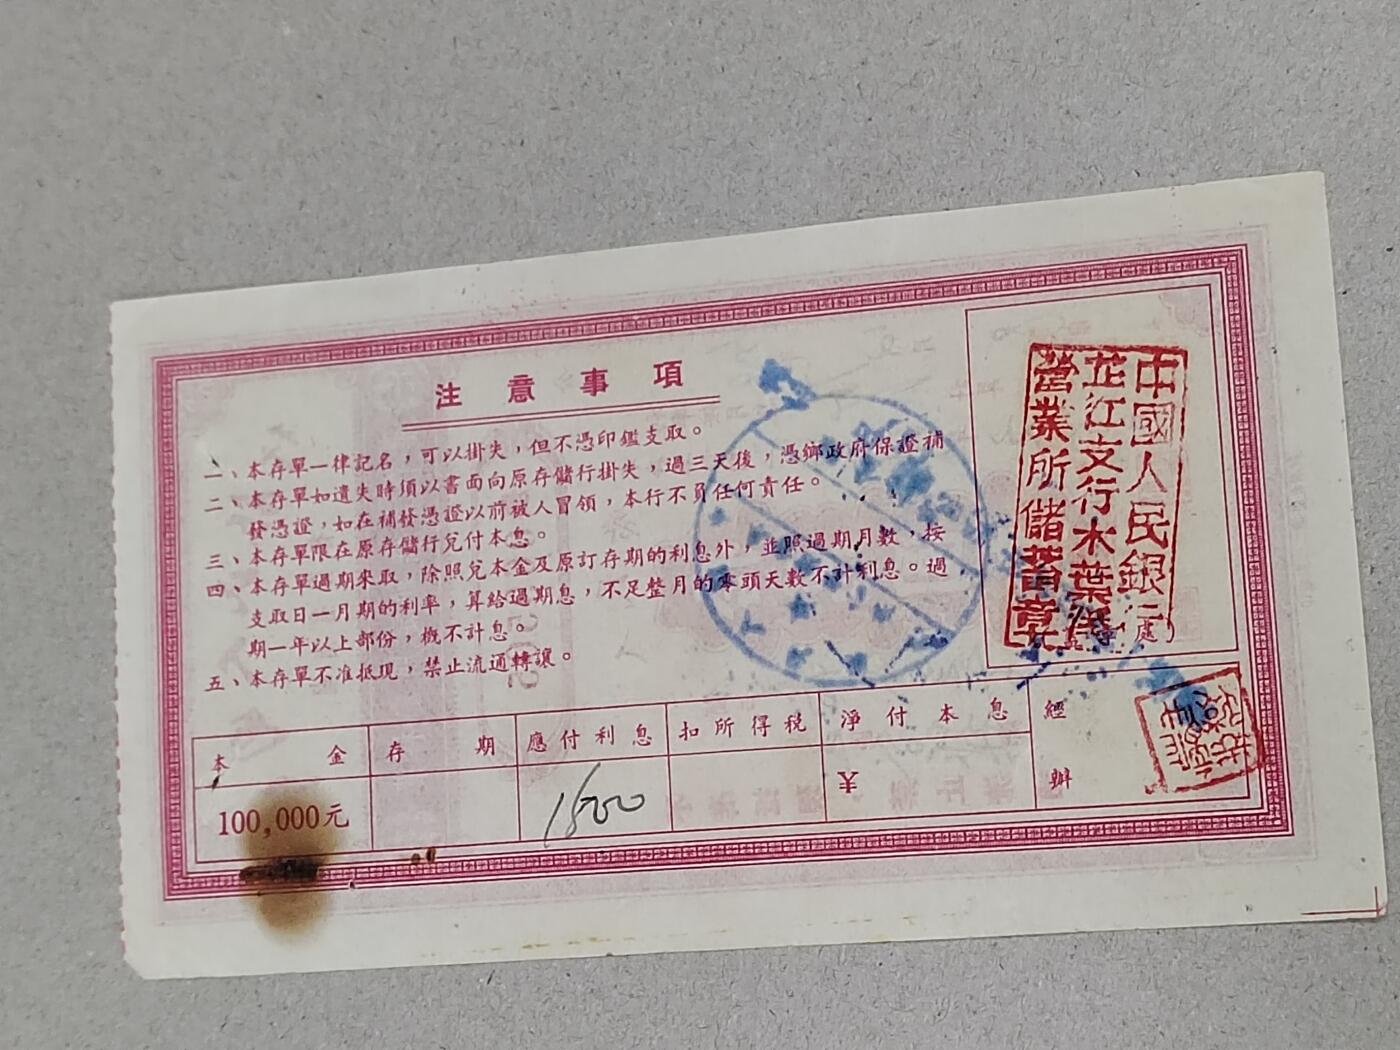 注意事項
一、本存單一律記名，可以掛失，但不憑印鑑支取。
二、本存單如遺失時須以書面向原存儲行掛失，過三天後，憑鄉政府保證補
發憑證，如在補發憑證以前被人冒領，本行不負任何責任。
三、本存單限在原存儲行兌付本息。
四、本存單過期來取，除照兌本金及原訂存期的利息外，並照過期月數，按
支取日一月期的利率，算給過期息，不足整月的零頭天數不計利息。過
期一年以上部份，概不計息。
五、本存單不准抵現，禁止流通轉讓。
中國人民銀行
芷江支行水葉
營業所儲蓄章
處）
本金
存期
應付利息
扣所得稅
淨付本息
經辦
100,000元
1800